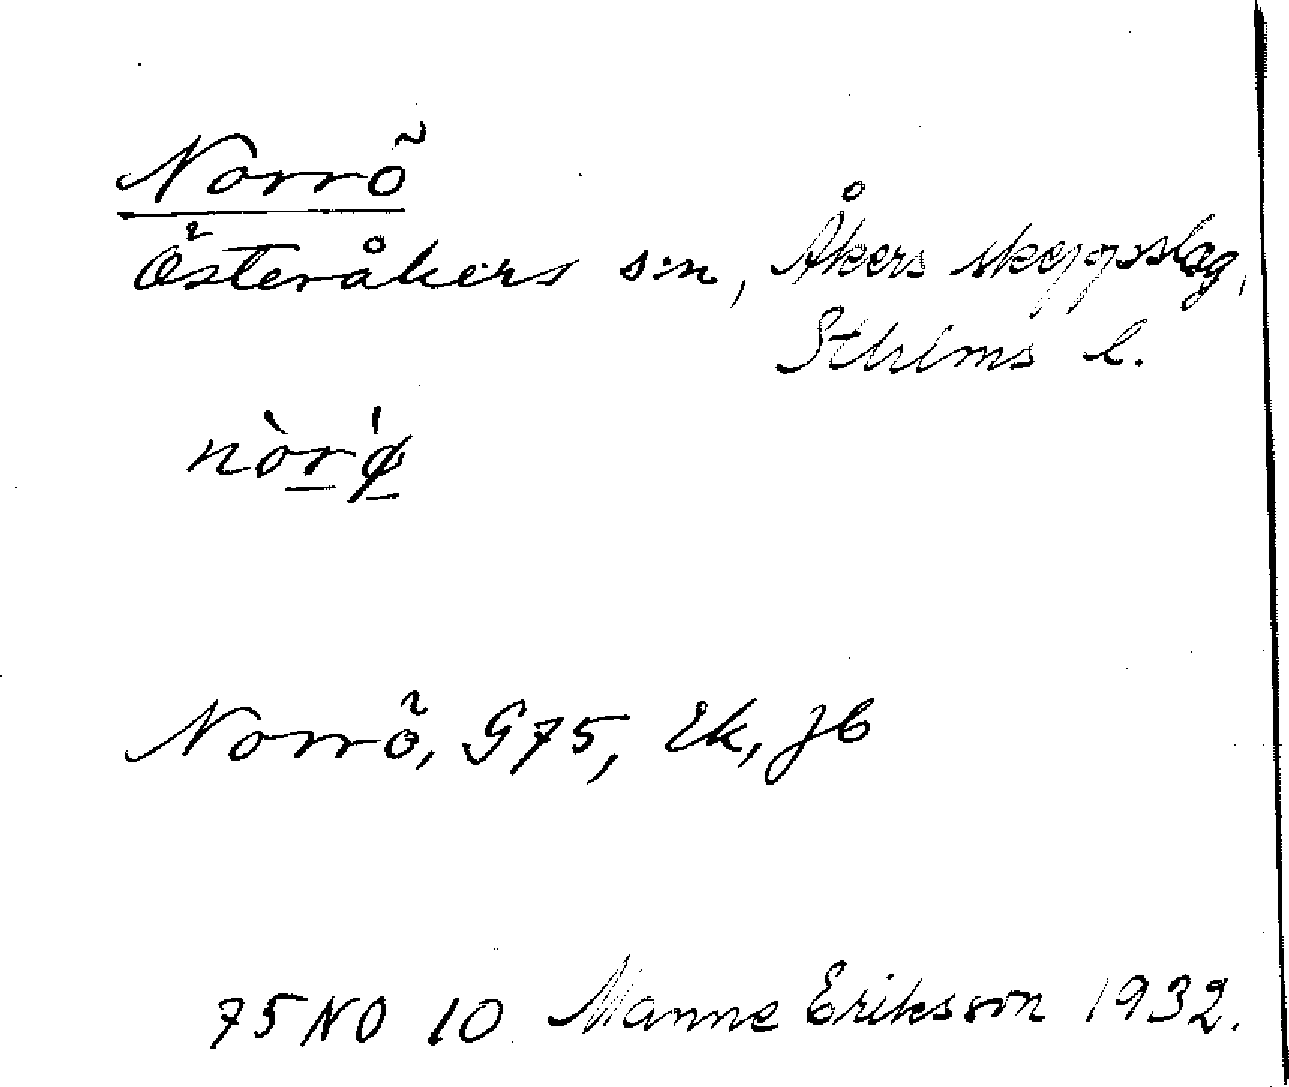 Norrö
Österåkers s:n, Åkers skeppslag,
Sthlms l.
nòr̲ø̲̍
Norrö, G75, Ek, Jb
75 NO 10 Manne Eriksson 1932.